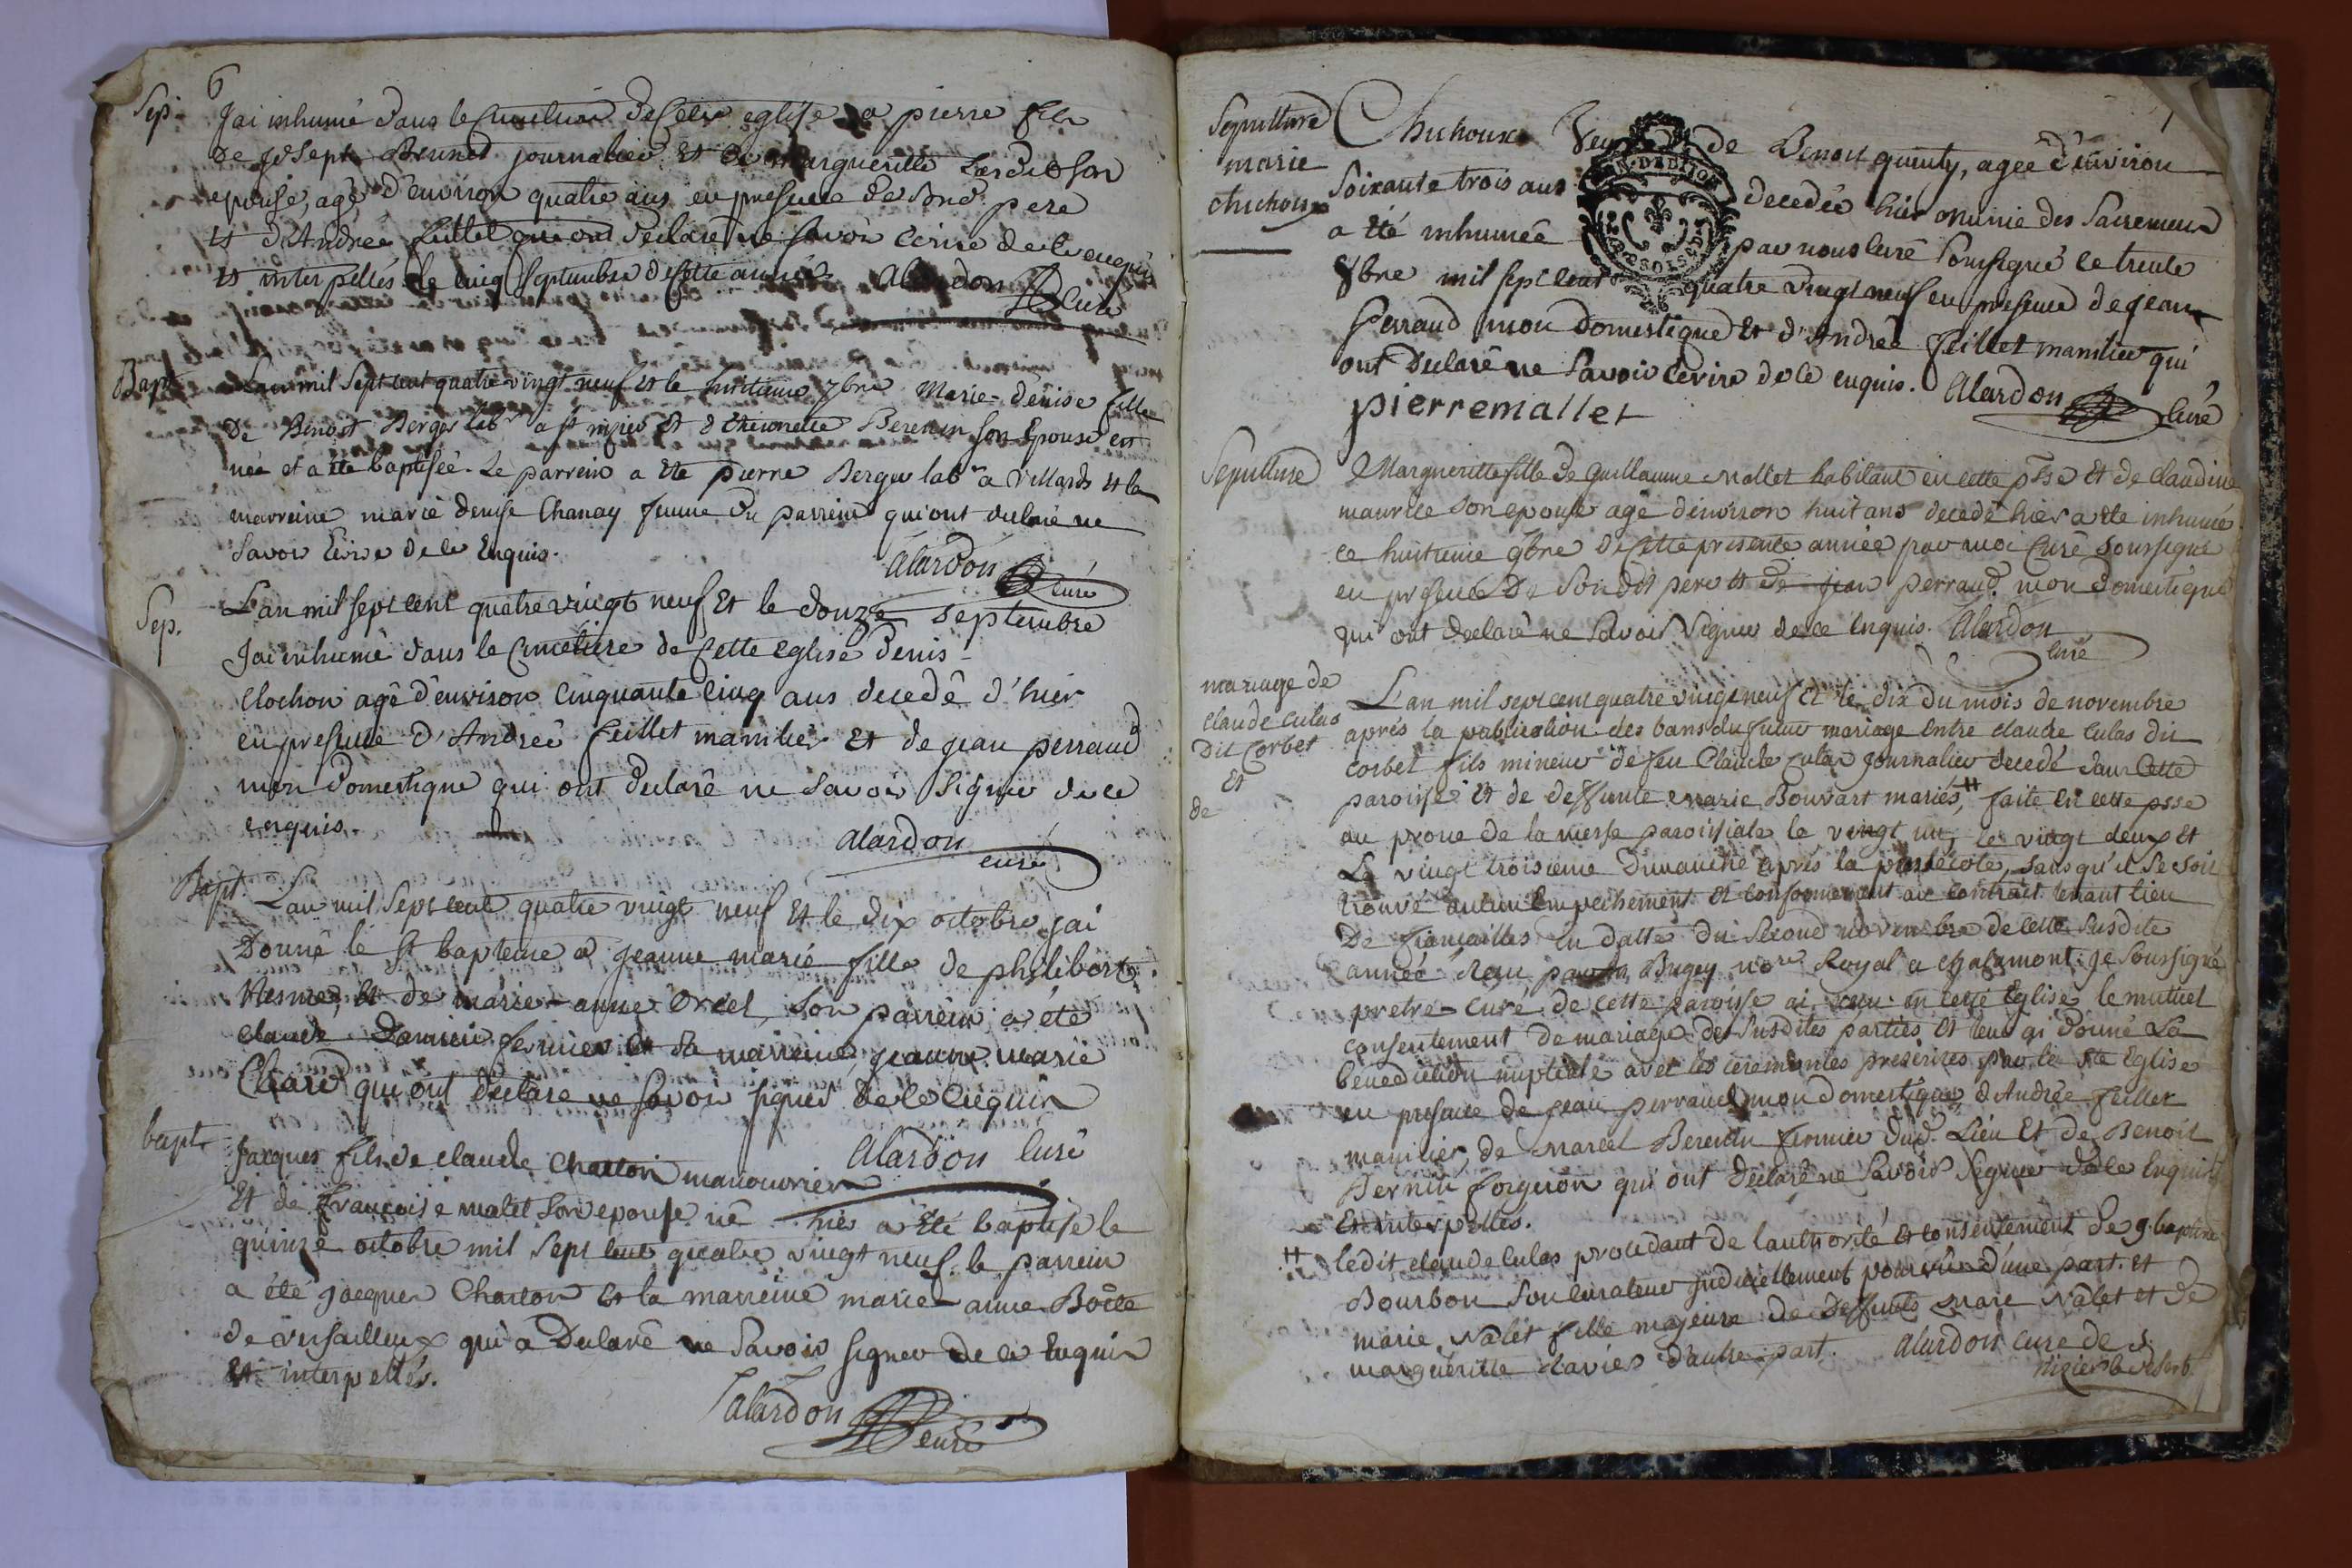 6
Sep. Jai inhumé dans le Cimetiere de Cette eglise a pierre fils
de joseph Brunet journalier et de Marguerite son
epouse, agé d'environ quatre ans en presence de sond. pere
et d'Andree feillet qui ont declaré ne savoir ecrire de ce enquis
et interpellés le cinq septembre de cette année. alardon Curé
Bapt. L'an mil sept cent quatre vingt neuf et le huitieme 7bre Marie-denise fille
De Benoit Berger labr a st nizier et d'Etiennette Berenin son Epouse est
née et a été baptisée. Le parrein a été pierre Berger labr a villards et la
marreine marie denise Chanay femme du parrein qui ont declaré ne
savoir Ecrire de ce Enquis.
alardon Curé
Sep. L'an mil sept cent quatre vingt neuf et le douze septembre
Jai inhumé dans le Cimetiere de Cette eglise denis
Clochon agé d'environ Cinquante Cinq ans decedé d'hier
en presence d'Andreé feillet manilier et de jean perraud
mon domestique qui ont declaré ne savoir signer de ce
enquis.
alardon
curé
Bapt. L'an mil sept cent quatre vingt neuf et le dix octobre jai
Donné le st bapteme a jeanne marie fille de philibert
Mesme, et de marie-anne Orcel, son parrein a été
claude Damien fermier et sa marreine jeanne marie
Chard qui ont declaré ne savoir signer de ce Enquis
alardon Curé
bapt. Jacques fils de claude Charton manouvrier
Et de françoise malet son epouse né hier a été baptisé le
quinze octobre mil sept cent quatre vingt neuf. le parrein
a été jacques Charton et la marreine marie-anne Boëte
de versailleux qui a Declaré ne savoir signer de ce Enquis
Et interpellés.
alardon
curé
7
Sepulture
marie
chichoux
Chichoux Veuve de Benoit guenty, ageé d'environ
Soixante trois ans decedée hier munie des sacremens
a été inhumée par nous Curé soussigné ce trente
8bre mil sept cent quatre vingt neuf en presence de jean
Perraud mon domestique et d'Andreé feillet manilier qui
ont Declaré ne savoir Ecrire de ce enquis. alardon Curé
pierre mallet
Sepulture Margueritte fille de guillaume mallet habitant en cette psse et de Claudine
maurice son epouse agé d'environ huit ans decedé hier a été inhumé
ce huitieme 9bre de cette presente année par moi Curé soussigné
en presence de son dit pere et de jean perraud mon domestique
qui ont declaré ne savoir signer de ce enquis. alardon
curé
mariage de
claude culas
dit Corbet
et
de
L'an mil sept cent quatre vingt neuf Et le dix du mois de novembre
après la publication des bans du futur mariage entre claude Culas dit
corbet fils mineur de feu Claude culas journalier decedé dans Cette
paroisse et de deffunte marie Bouvart mariés, # faite en cette psse
au prone de la messe paroissiale le vingt un, les vingt deux et
Le vingt troisieme Dimanche après la pentecote, sans qu'il se soit
trouvé aucun empechement et conformement au contrait tenant lieu
De fiançailles en datte du second novembre de cette susdite
année reçu par Bugey nore Royal a chalamont. je soussigné
pretre-curé de cette paroisse ai reçu en cette Eglise le mutuel
consentement de mariage des susdites parties et leur ai donné La
benediction nuptiale avec les ceremonies prescrites par la ste Eglise
en presence de jean perraud mon domestique, d'Andreé feillet
manilier, de marcel Berenin fermier dud. Lieu et de Benoit
Pernin forgeron qui ont Declaré ne savoir signer de ce Enquis
Et interpellés.
# ledit claude culas procedant de l'authorité et consentement de j. baptiste
Bourbon son curateur judiciellement pourvû d'une part. et
marie Valet fille majeure de deffunts marc Valet et de
marguerite clavier d'autre part. alardon cure de s.
nizier le desert